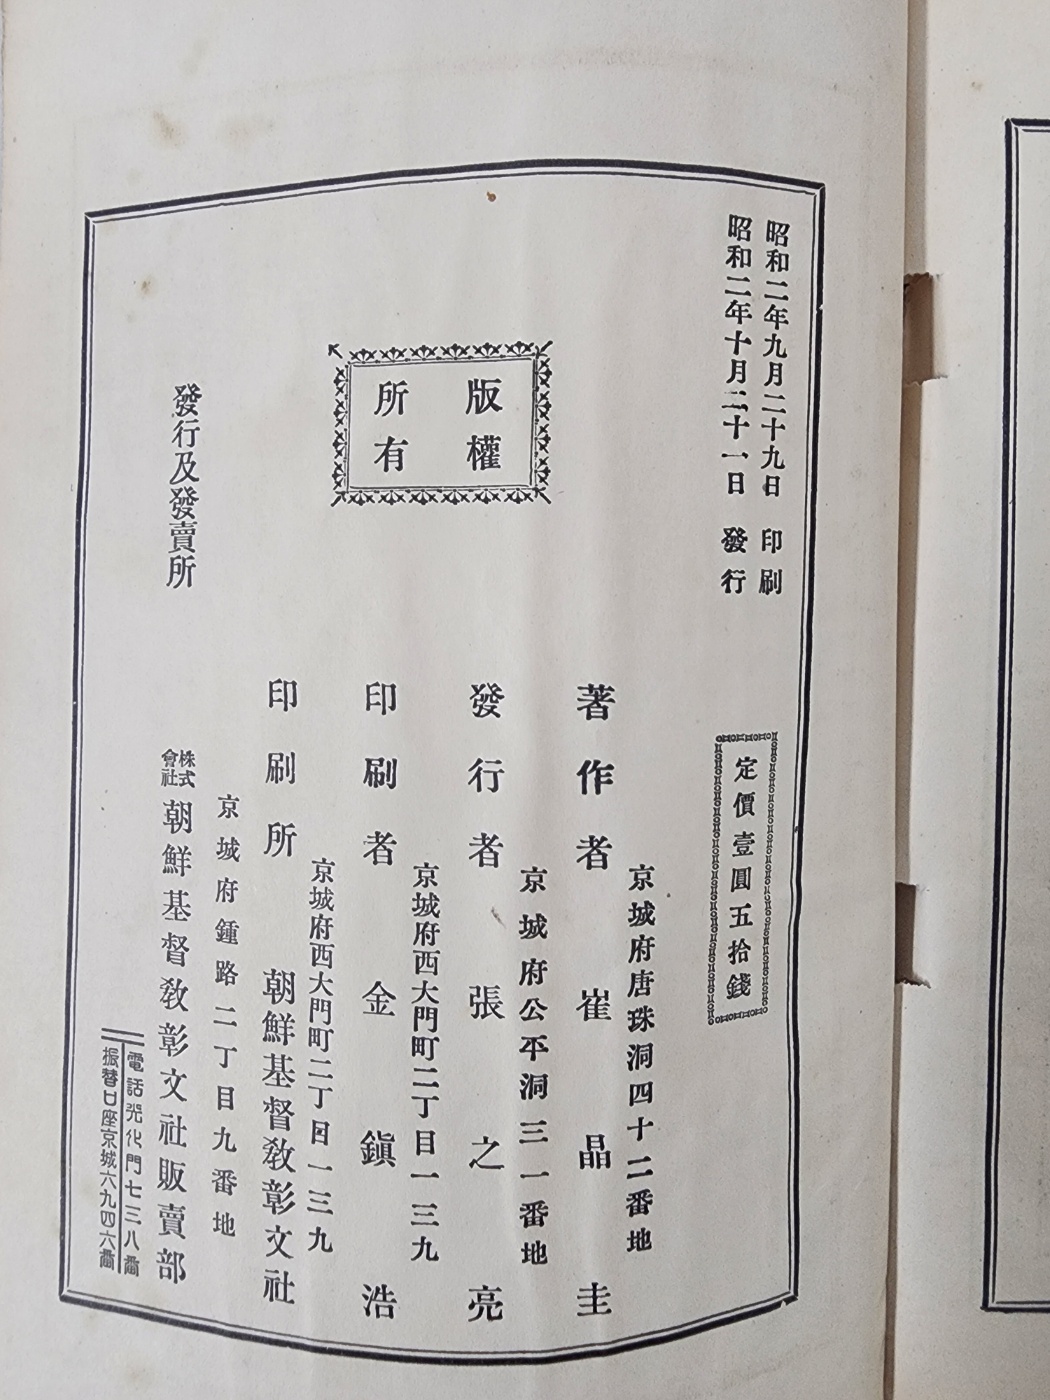 昭和二年九月二十九日 印刷
昭和二年十月二十一日 發行
定價壹圓五拾錢
版權
所有
京城府唐珠洞四十二番地
著作者 崔晶圭
京城府公平洞三一番地
發行者 張之亮
京城府西大門町二丁目一三九
印刷者 金鎭浩
京城府西大門町二丁目一三九
印刷所 朝鮮基督敎彰文社
發行及發賣所
京城府鍾路二丁目九番地
株式會社 朝鮮基督敎彰文社販賣部
電話光化門七三八番
振替口座京城六九四六番